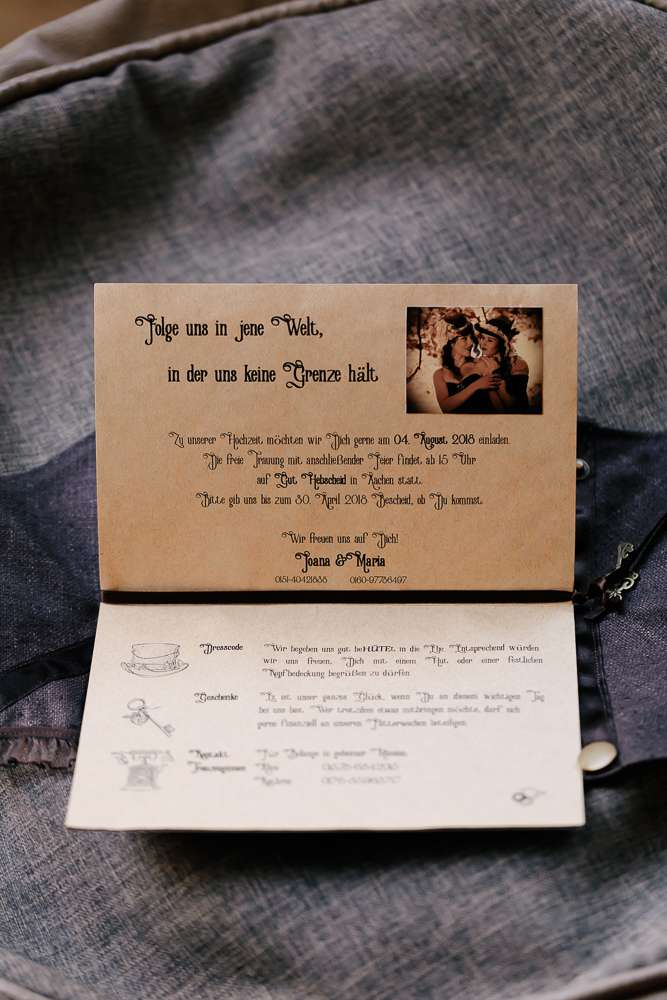 Folge uns in jene Welt,
in der uns keine Grenze hält
Zu unserer Hochzeit möchten wir Dich gerne am 04. August 2018 einladen.
Die freie Trauung mit anschließender Feier findet ab 15 Uhr
auf Gut Hebscheid in Aachen statt.
Bitte gib uns bis zum 30. April 2018 Bescheid, ob Du kommst.
Wir freuen uns auf Dich!
Joana & Maria
Dresscode
Wir begeben uns gut beHÜTEt in die Ehe. Entsprechend würden
wir uns freuen, Dich mit einem Hut oder einer festlichen
Kopfbedeckung begrüßen zu dürfen.
Geschenke
Es ist unser ganzes Glück, wenn Du an diesem wichtigen Tag
bei uns bist. Wer trotzdem etwas mitbringen möchte, darf sich
gerne finanziell an unseren Flitterwochen beteiligen.
Kontakt
Trauzeuginnen
Für Belange in geheimer Mission: